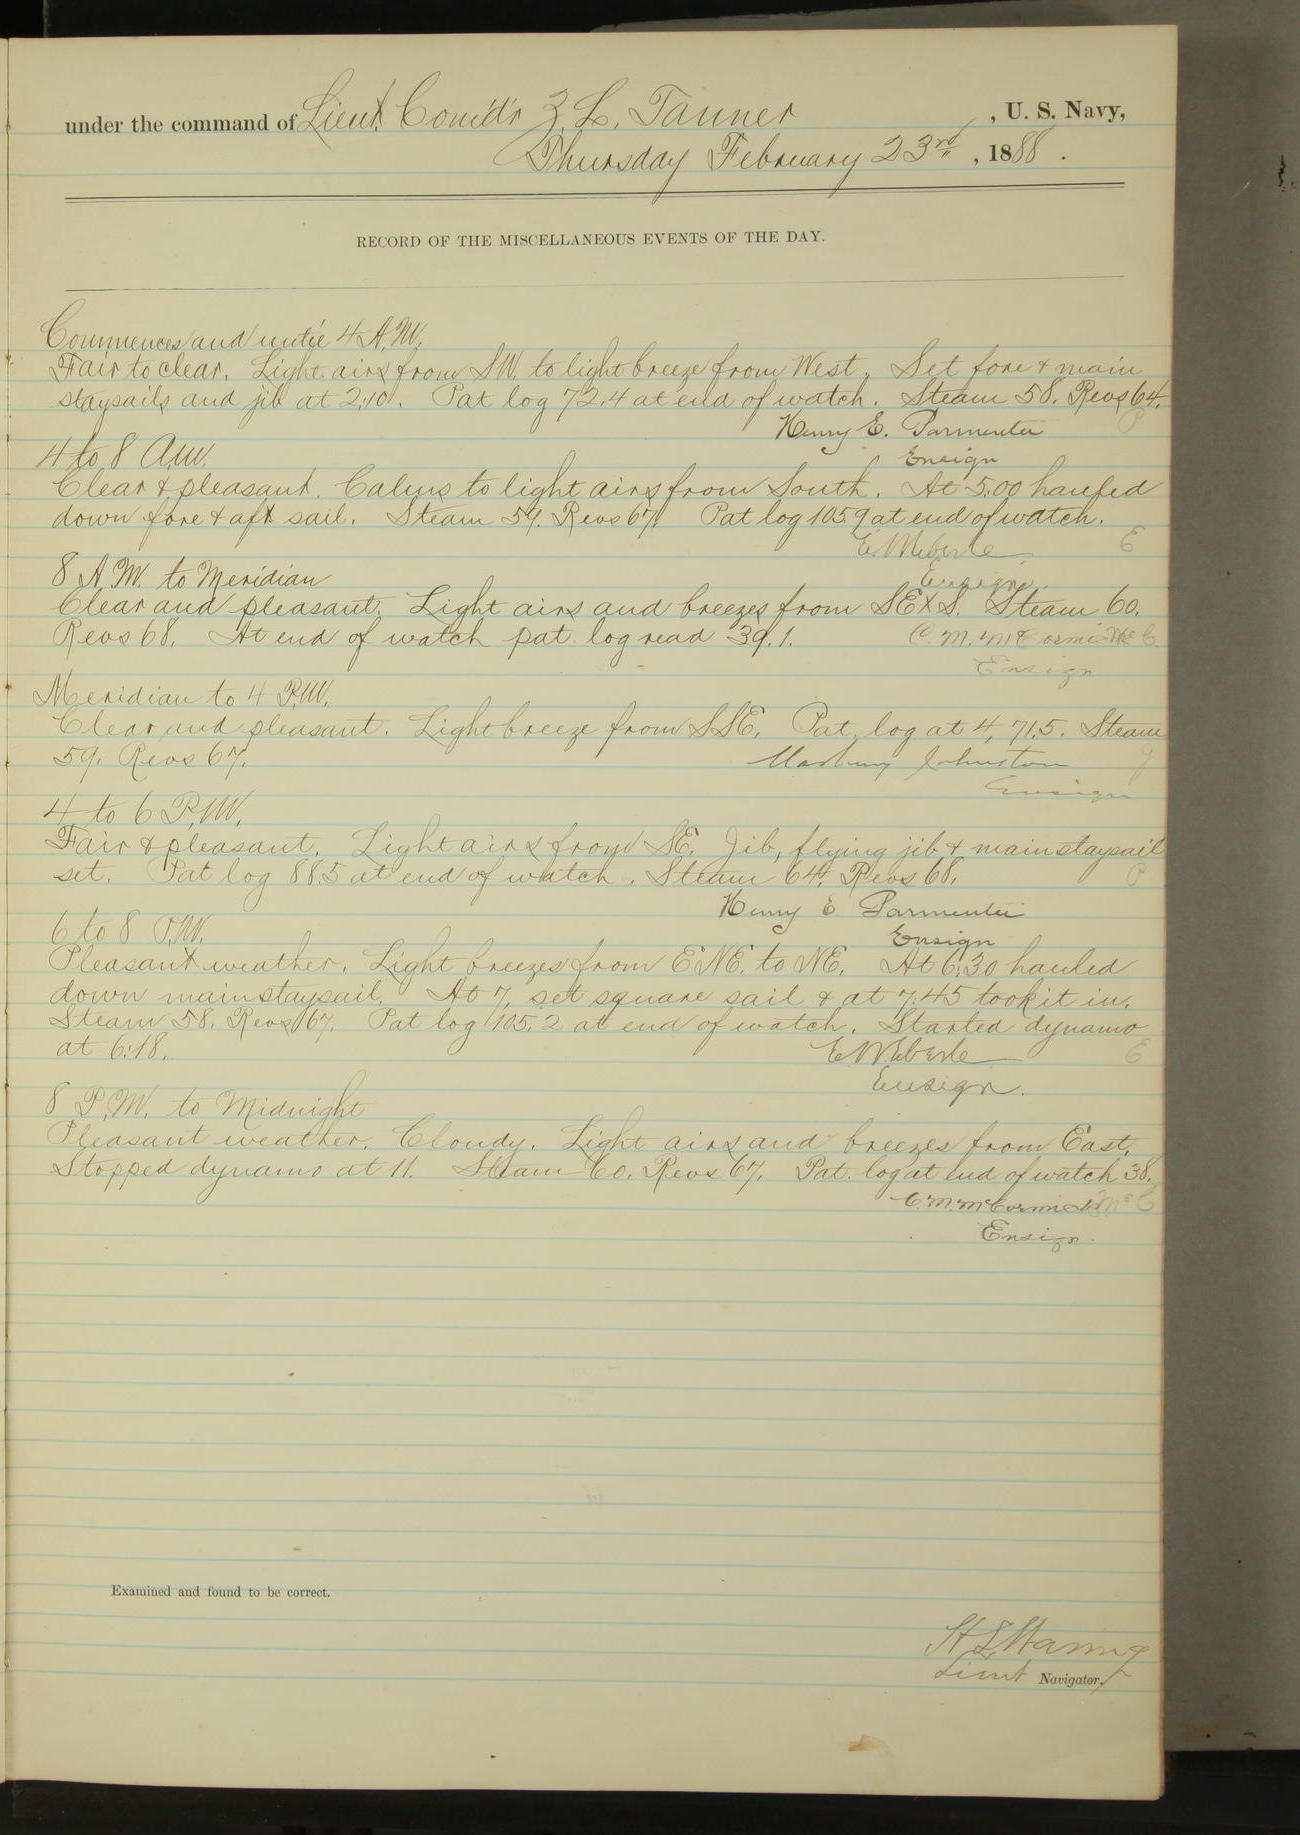 under the command of Lieut. Comd'r Z. L. Tanner, U. S. Navy,
Thursday February 23rd, 1888.
RECORD OF THE MISCELLANEOUS EVENTS OF THE DAY.
Commences and until 4 A.M.
Fair to clear. Light airs from SW. to light breeze from West. Set fore & main
staysails and jib at 2.10. Pat log 72.4 at end of watch. Steam 58. Revs 64.
Henry E. Parmenter P
Ensign
4 to 8 A.M.
Clear & pleasant. Calms to light airs from South. At 5.00 hauled
down fore & aft sail. Steam 59. Revs 67. Pat log 105.9 at end of watch.
E. W. Eberle E
Ensign.
8 A.M. to Meridian
Clear and pleasant. Light airs and breezes from SE x S. Steam 60.
Revs 68. At end of watch pat. log read 39.1. C. M. McCormick McC.
Ensign
Meridian to 4 P.M.
Clear and pleasant. Light breeze from SSE. Pat. log at 4, 71.5. Steam
59. Revs 67. Marbury Johnston J
Ensign
4 to 6 P.M.
Fair & pleasant. Light airs from SE. Jib, flying jib & main staysail
set. Pat log 88.5 at end of watch. Steam 64. Revs 68. P
Henry E. Parmenter
Ensign
6 to 8 P.M.
Pleasant weather. Light breezes from ENE. to NE. At 6:30 hauled
down main staysail. At 7, set square sail & at 7:45 took it in.
Steam 58. Revs 67. Pat log 105.2 at end of watch. Started dynamo
at 6:18. E. W. Eberle E
Ensign.
8 P.M. to Midnight
Pleasant weather. Cloudy. Light airs and breezes from East.
Stopped dynamo at 11. Steam 60. Revs 67. Pat. log at end of watch 38.
C. M. McCormick McC
Ensign.
Examined and found to be correct.
Lieut Navigator.